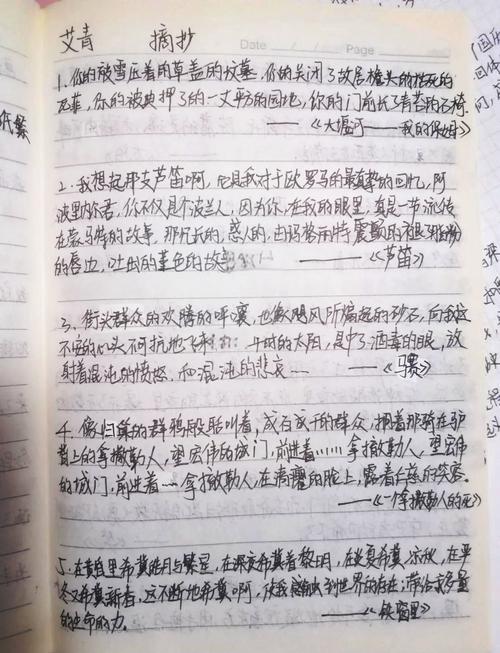 艾青 摘抄
Date Page
1. 你的被雪压着的草盖的坟墓, 你的关闭了故居檐头的枯死的
瓦菲, 你的被典押了的一丈平方的园地, 你的门前长了青苔的石椅.
——《大堰河——我的保姆》
2. 我想起那支芦笛啊, 它是我对于欧罗巴的最真挚的回忆, 阿
波里内尔君, 你不仅是个波兰人, 因为你, 在我的眼里, 真是一节流传
在蒙马特的故事, 那冗长的, 惑人的, 由玛格丽特震颤的褪了
的唇边, 吐出的堇色的故事 ——《芦笛》
3. 街头群众的欢腾的呼嚷, 也像飓风所煽起的砂石, 向我这
不安的心头不可抗地飞来 午时的太阳, 是中了酒毒的眼, 放
射着混沌的愤怒, 和混沌的悲哀… ——《马赛》
4. 像归巢的群鸦般聒叫着, 成百成千的群众, 拥着那骑在驴
背上的拿撒勒人, 望宏伟的城门, 前进着……拿撒勒人, 望宏伟
的城门, 前进着…拿撒勒人, 在清癯的脸上, 露着仁慈的笑容.
——《一个拿撒勒人的死》
5. 在黄昏里希冀皓月与繁星, 在深夜希冀着黎明, 在炎夏希冀凉秋, 在严
冬又希冀新春, 这不断地希冀啊, 使我感触到世界的存在; 带给我多量
的生命的力. ——《铁窗里》